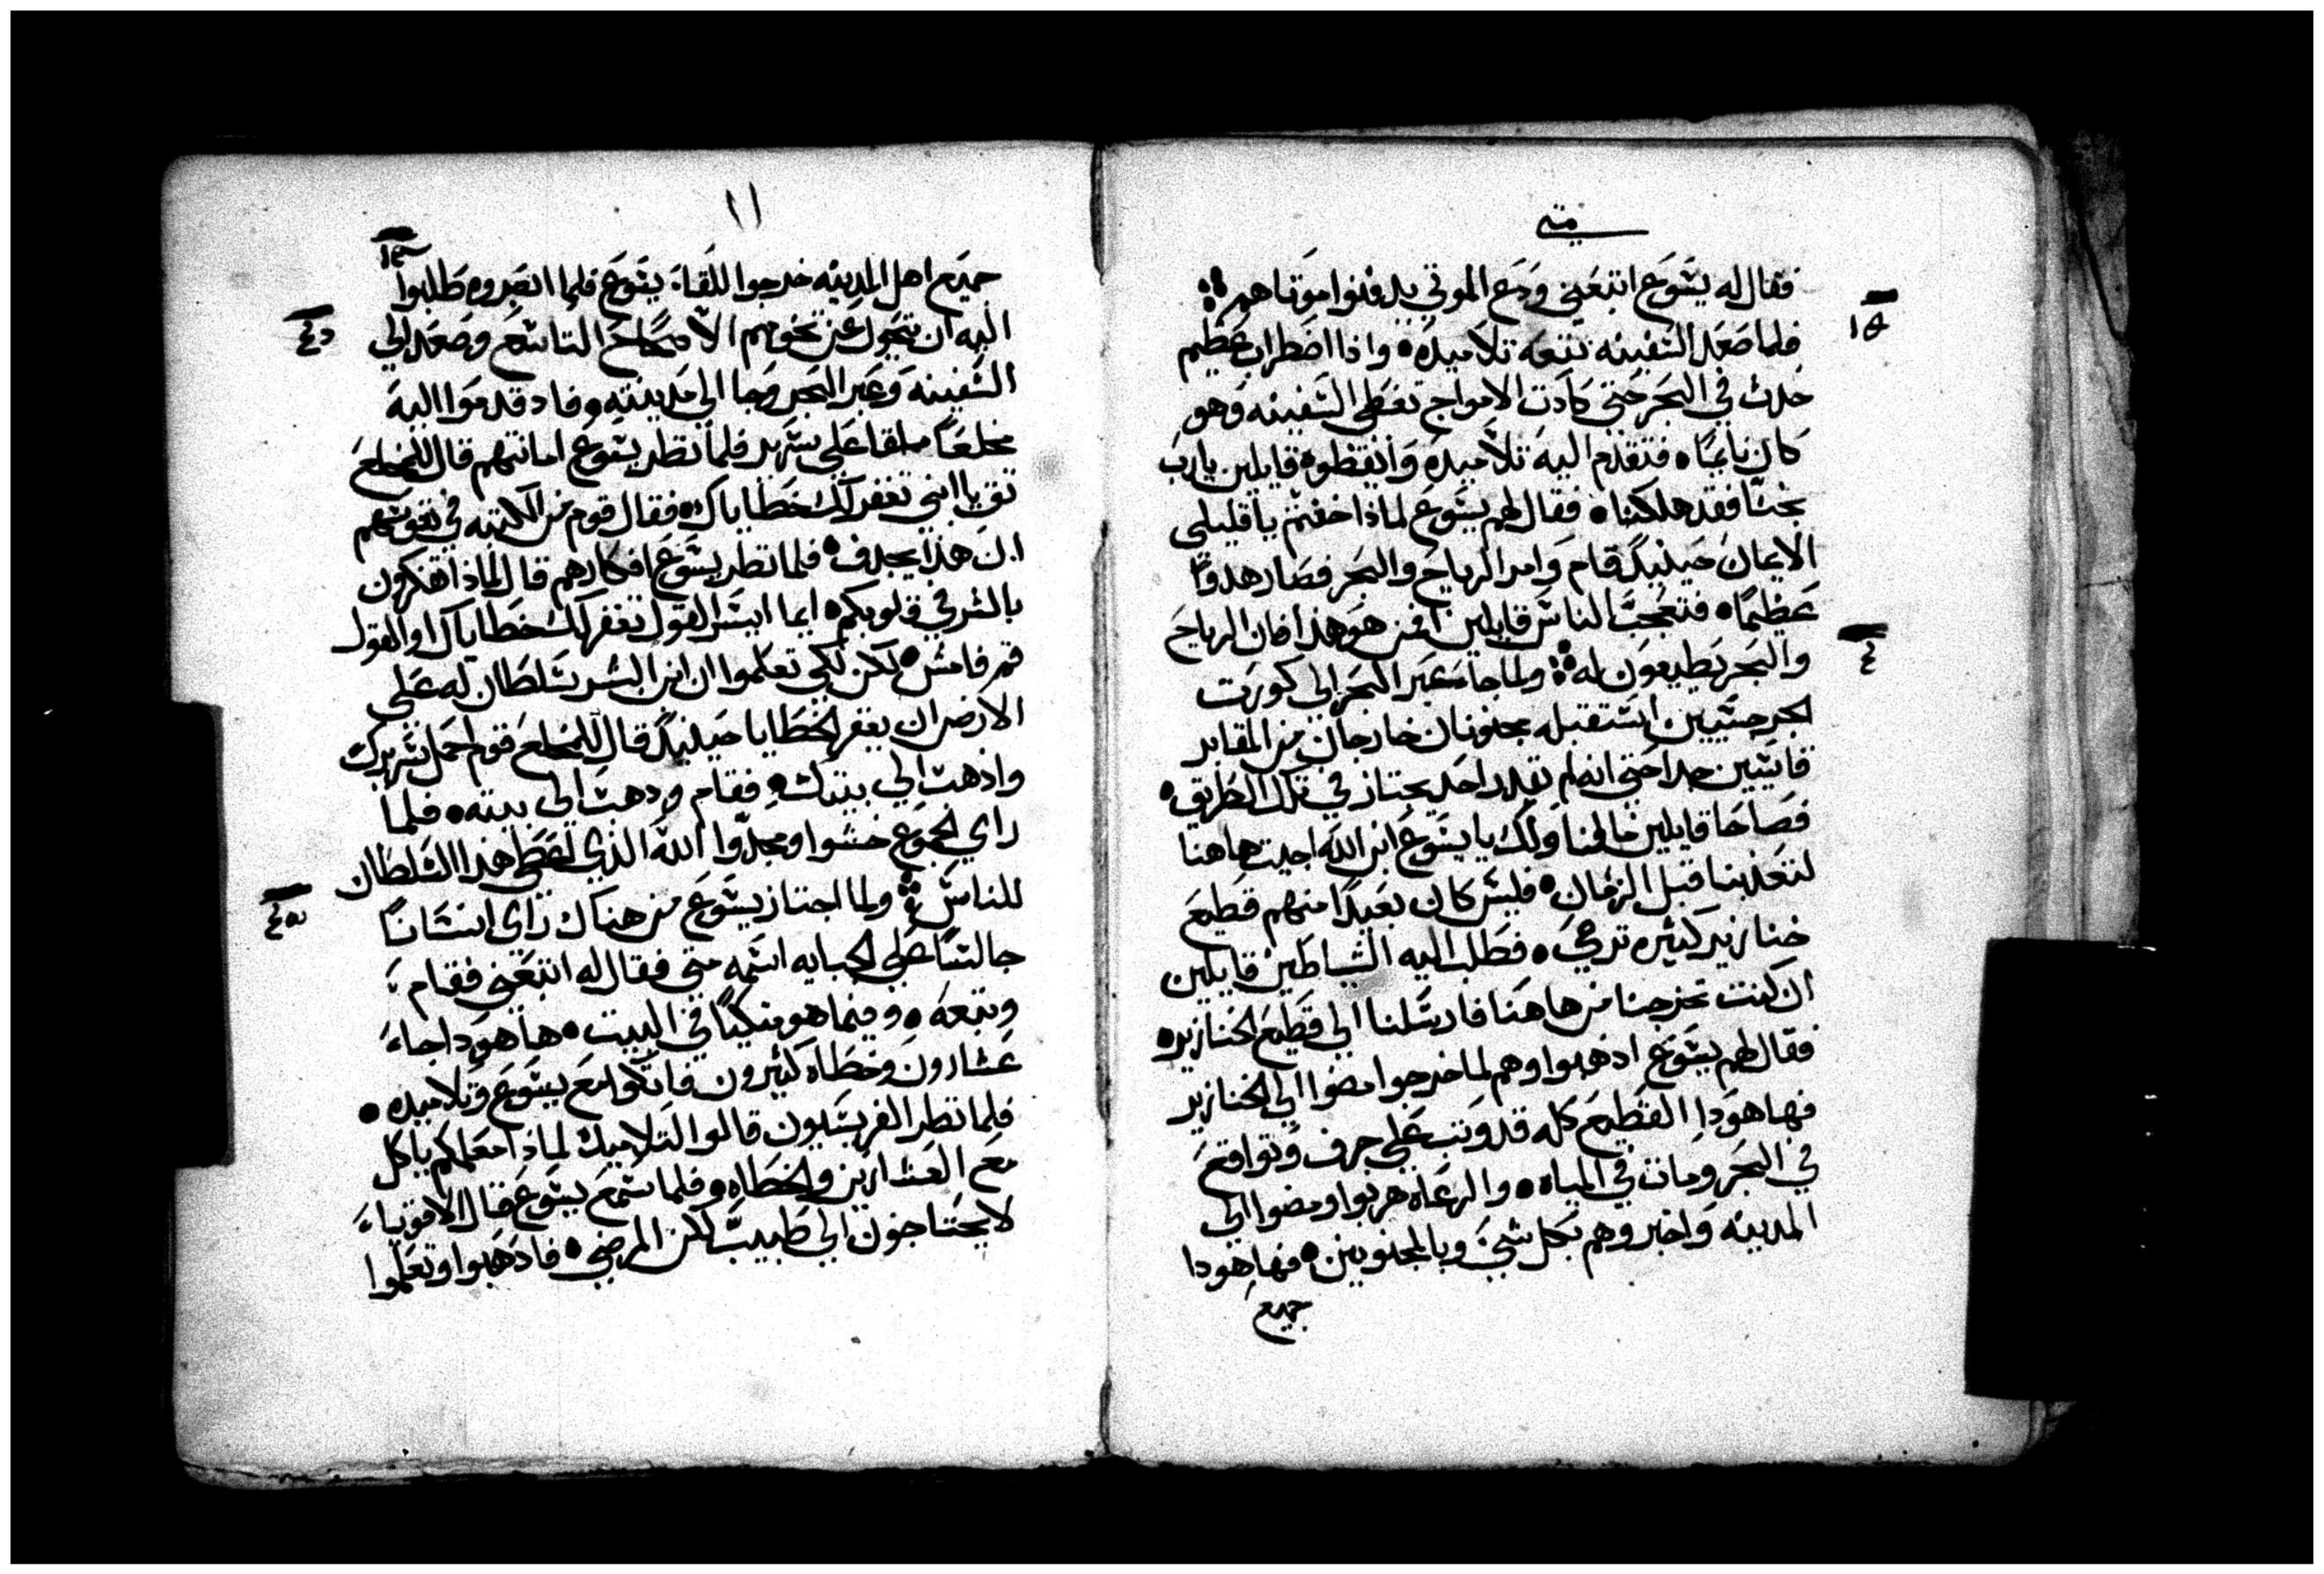 متى
فقال له يشوع اتبعني ودع الموتي يدفنوا موتاهم
فلما صعد السفينه تتبعه تلاميده واذا اضطراب عظيم
حدث في البحر حتى كادت الامواج تغطى السفينه وهو
كان نايمًا فتقدم اليه تلاميده وايقظوه قايلين يارب
نجنا فقد هلكنا فقال لهم يشوع لماذا خفتم يا قليلى
الايمان حينيدٍ قام وامر الرياح والبحر فصار هدوًا
عظيمًا فتعجب الناس قايلين من هو هذا فان الرياح
والبحر يطيعون له ولما جا معبر البحر الى كورت
الجرجسيين استقبله مجنونان خارجان من المقابر
قاسيين جدا حتى انه لم يقدر احد يجتاز في تلك الطريق
فصاحا قايلين مالنا ولك يا يشوع ابن الله اجيت هاهنا
لتعدبنا قبل الزمان فليس كان بعيدًا منهم قطيع
خنازير كثيره ترعي فطلب اليه الشياطين قايلين
ان كنت تخرجنا من هاهنا فارسلنا الي قطيع الخنازير
فقال لهم يشوع اذهبوا وهم لما خرجوا مضوا الي الخنازير
فها هودا القطيع كله قد وثب على جرف وتواقع
في البحر ومات في المياه والرعاه هربوا ومضوا الى
المدينه واخبروهم بكل شيء وبالمجنونين فها هودا
جميع
١١
جميع اهل المدينه خرجوا للقاء يشوع فلما ابصروه طلبوا
اليه ان يتحول عن تخومهم الاصحاح التاسع وصعد الي
السفينه وعبر البحر وجا الي مدينته وفاد قدموا اليه
مخلعًا ملقا على سرير فلما نظر يشوع امانتهم قال للمخلع
ثق يا ابني تغفر لك خطاياك فقال قوم من الكتبه في نفوسهم
ان هذا يجدف فلما نظر يشوع افكارهم قال لماذا تفكرون
بالشر في قلوبكم ايما ايسر القول تغفر لك خطاياك او القول
قم فامش لكن لكي تعلموا ان ابن البشر سلطان له على
الارض ان يغفر الخطايا حينيدٍ قال للمخلع قوم احمل سريرك
واذهب الي بيتك فقام ودهب الي بيته فلما
راي الجموع خشوا ومجدوا الله الذي اعطى هذا السلطان
للناس ولما اجتاز يشوع من هناك راى انسانًا
جالسًا على الجبايه اسمه متى فقال له اتبعني فقام
وتبعه وفيما هو متكيًا في البيت ها هودا جاء
عشارون وخطاه كثيرون فاتكوا مع يشوع وتلاميده
فلما نظر الفريسيون قالوا لتلاميده لماذا معلمكم ياكل
مع العشارين والخطاه فلما سمع يشوع قال الاقوياء
لا يحتاجون الي طبيب لكن المرضي فادهبوا وتعلموا